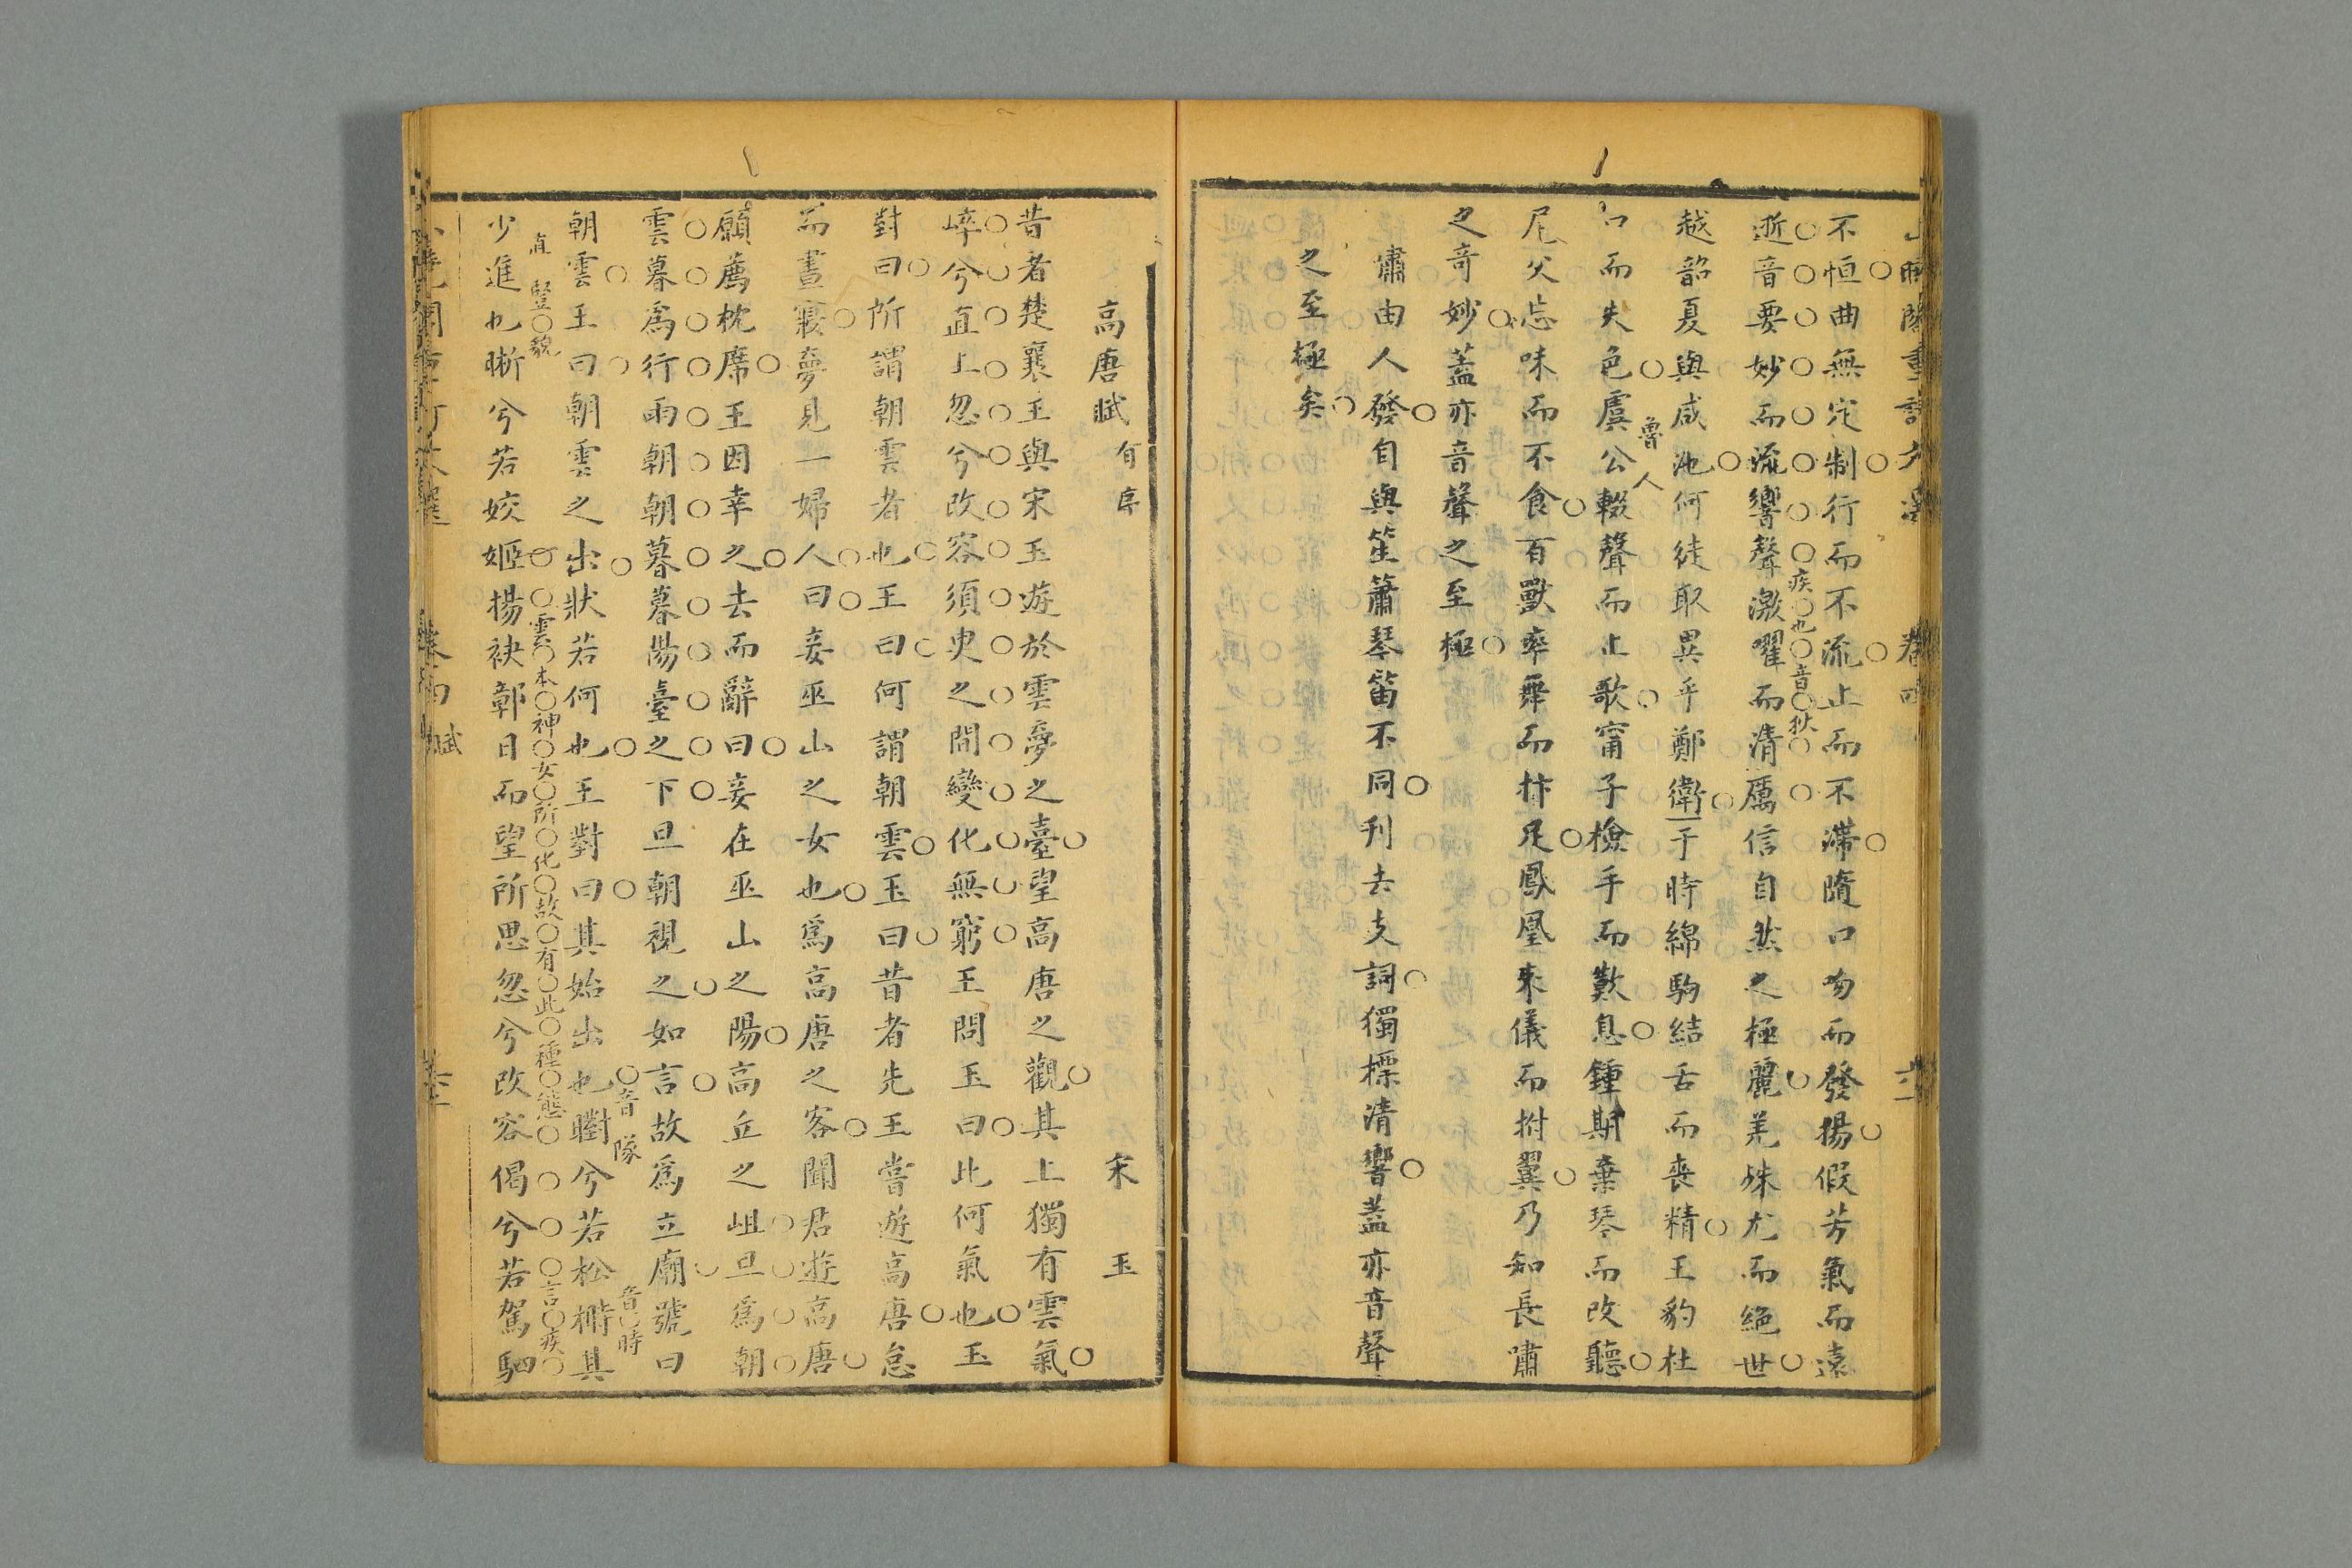 不恒曲無定制行而不流止而不滯隨口吻而發揚假芳氣而遠
逝音要妙而流響聲激曜而清厲信自然之極麗羌殊尤而絕世
疾也音狄
越韶夏與咸池何徒取異乎鄭衛于時綿駒結舌而喪精王豹杜
魯人
口而失色虞公輟聲而止歌甯子檢手而歎息鍾期棄琴而改聽
尼父忘味而不食百獸率舞而抃足鳳凰來儀而拊翼乃知長嘯
之奇妙蓋亦音聲之至極
嘯由人發自與笙簫琴笛不同刊去支詞獨標清響蓋亦音聲
之至極矣
高唐賦 有序 宋玉
昔者楚襄王與宋玉遊於雲夢之臺望高唐之觀其上獨有雲氣
崪兮直上忽兮改容須臾之間變化無窮王問玉曰此何氣也玉
對曰所謂朝雲者也王曰何謂朝雲玉曰昔者先王嘗遊高唐怠
而晝寢夢見一婦人曰妾巫山之女也爲高唐之客聞君遊高唐
願薦枕席王因幸之去而辭曰妾在巫山之陽高丘之岨旦爲朝
雲暮爲行雨朝朝暮暮陽臺之下旦朝視之如言故爲立廟號曰
音隊 音時
朝雲王曰朝雲之出狀若何也王對曰其始出也㬣兮若松榯其
直豎貌 雲本神女所化故有此種態 言疾
少進也晣兮若姣姬揚袂鄣日而望所思忽兮改容偈兮若駕駟
賦